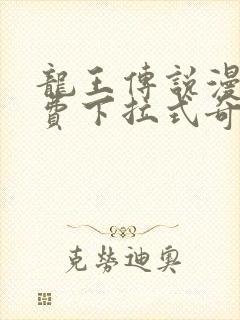 龍王傳說漫
費下拉式奇
克勞迪奧